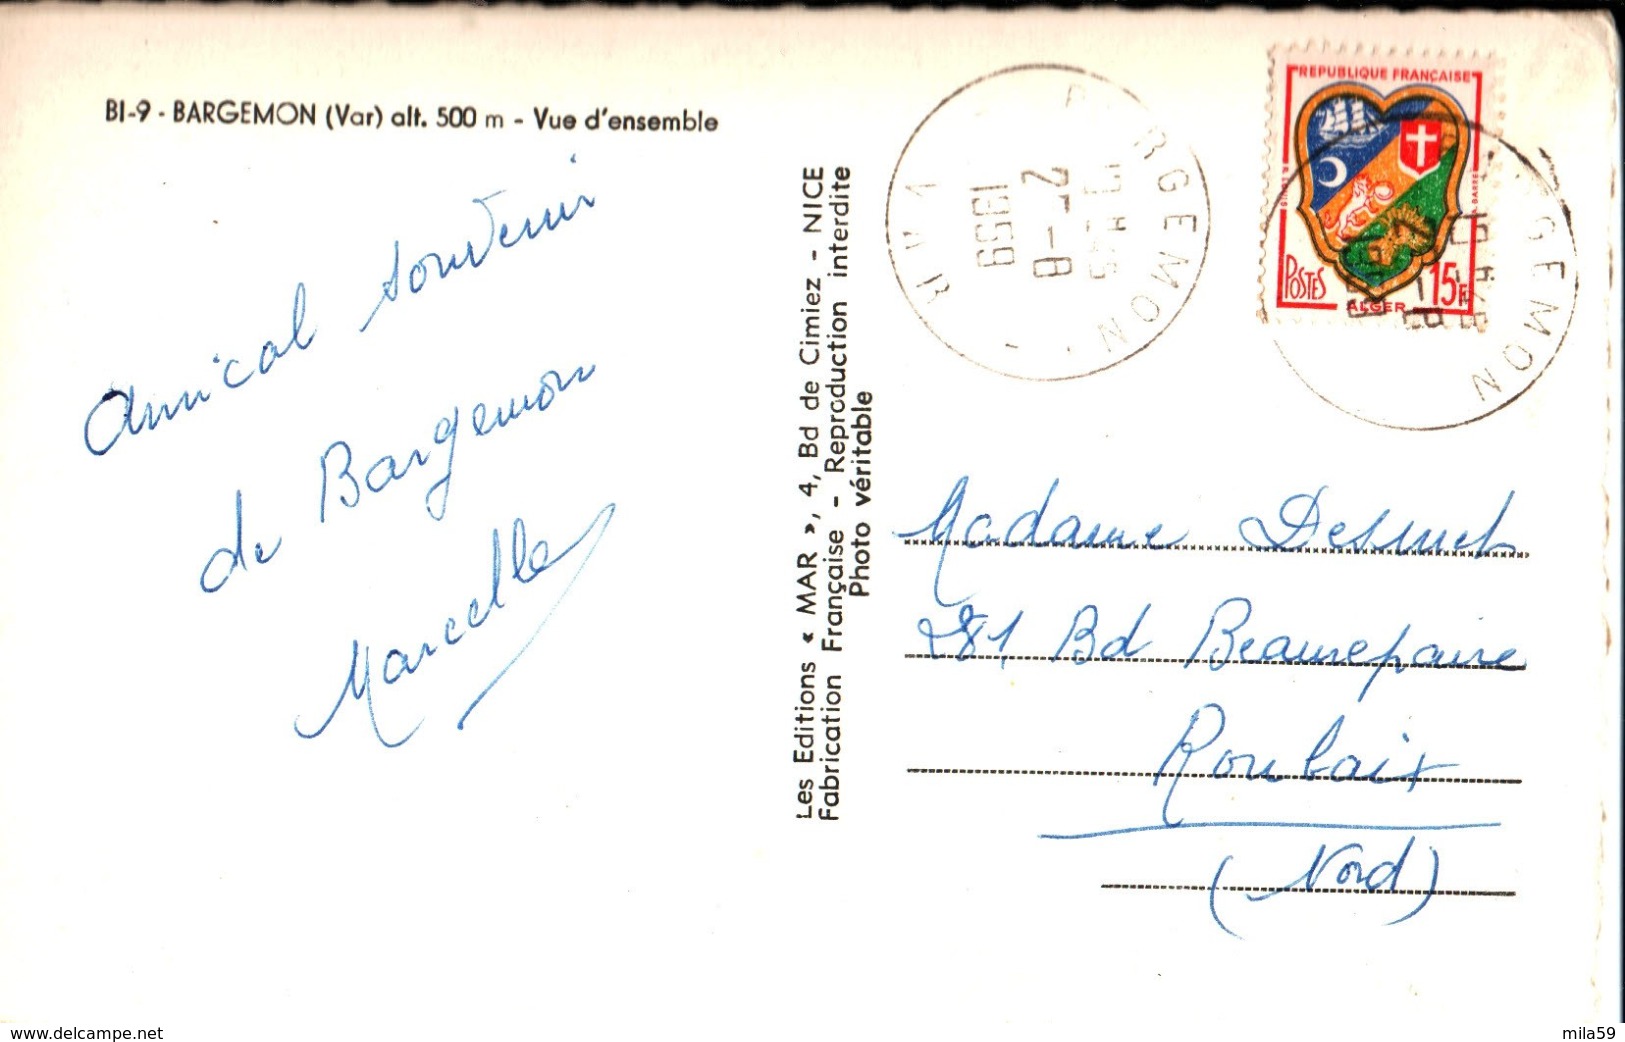 BI-9 - BARGEMON (Var) alt. 500 m - Vue d'ensemble
Amical souvenir
de Bargemon
Marcelle
Les Editions « MAR », 4, Bd de Cimiez - NICE
Fabrication Française - Reproduction interdite
Photo véritable
BARGEMON
VAR
17H45
2-8
1959
REPUBLIQUE FRANÇAISE
POSTES
ALGER
15F
Madame Desmet
281 Bd Beaurepaire
Roubaix
(Nord)
www.delcampe.net
mila59